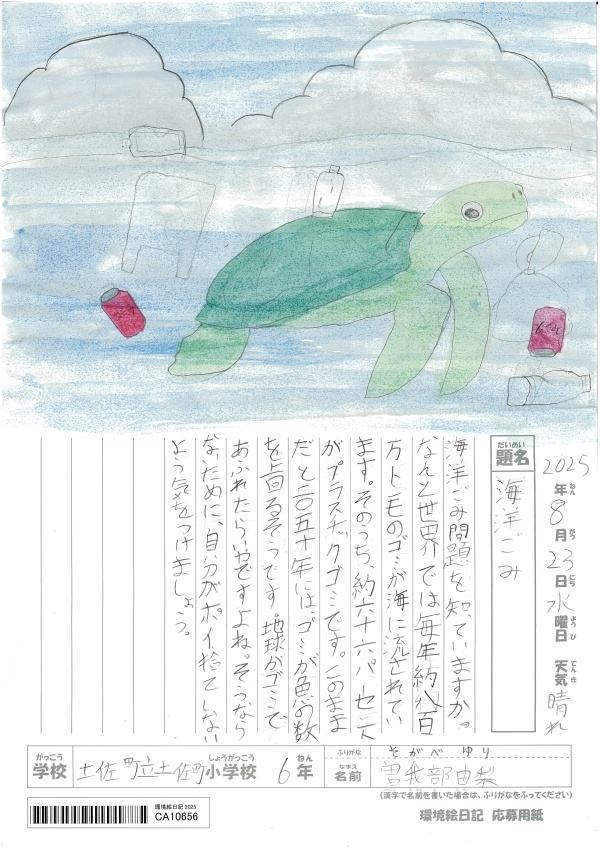 2025年ねん8月がつ23日にち水曜日ようび 天気てんき晴れ
だいめい
題名 海洋ごみ
海洋ごみ問題を知っていますか。
なんと世界では毎年約八百
万トンものゴミが海に流されてい
ます。そのうち、約六十六パーセント
がプラスチックゴミです。このまま
だと二〇五十年には、ゴミが魚の数
を上回るそうです。地球がゴミで
あふれたらいやですよね。そうなら
ないために、自分がポイ捨てしない
よう気をつけましょう。
がっこう しょうがっこう ねん
学校 土佐町立土佐町小学校 6年
ふりがな そがべ ゆり
なまえ
名前 曽我部由梨
(漢字で名前を書いた場合は、ふりがなをふってください)
環境絵日記 2025
CA10656
環境絵日記 応募用紙